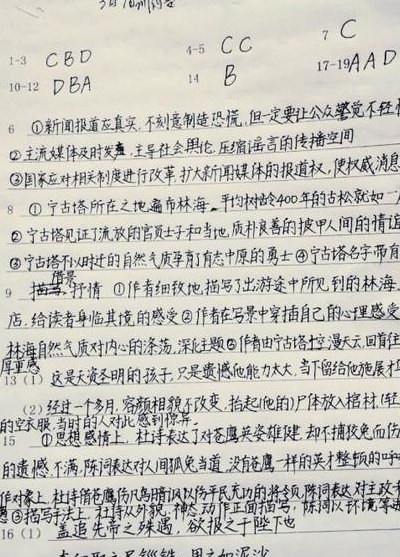 1-3 CBD 4-5 CC 7 C
10-12 DBA 14 B 17-19 AAD
6 ①新闻报道应真实,不刻意制造恐慌,但一定要让公众警觉不轻
②主流媒体及时发声,主导社会舆论,压缩谣言的传播空间
③国家应对相关制度进行改革,扩大新闻媒体的报道权,使权威消息
8 ①宁古塔所在之地遍布林海。平均树龄400年的古松就如一
②宁古塔见证了流放的官员士子和当地,质朴良善的披甲人间的情谊
③宁古塔不以时迁的自然气质孕育了有志中原的勇士④宁古塔名字带有
借景
9 描写,抒情 ①作者细致地描写了出游途中所见到的林海
店,给读者身临其境的感受②作者在写景中穿插自己的心理感受
林海自然气质对内心的涤荡,深化主题③作者由宁古塔上空漫天云,回首往
厚重感
13(1)这是天资圣明的孩子,只是遗憾他能力太大,当下留给他施展才
(2)经过一个多月,容颜相貌不改变,抬起(他的)尸体放入棺材,(轻
的空衣服,当时的人对此感到惊异。
15 ①思想感情上,杜诗表达了对苍鹰英姿雄健却不捕狡兔而伤
的遗憾、不满,陈词表达对人间狐兔当道,没有苍鹰一样的英才整顿的呼
作对象上,杜诗借苍鹰伤凡鸟暗讽以伤平民无功的将领,陈词表达对主政
③描写手法上,杜诗以外貌、神态、动作正面描写,陈词以环境等
16(1)盖追先帝之殊遇,欲报之于陛下也